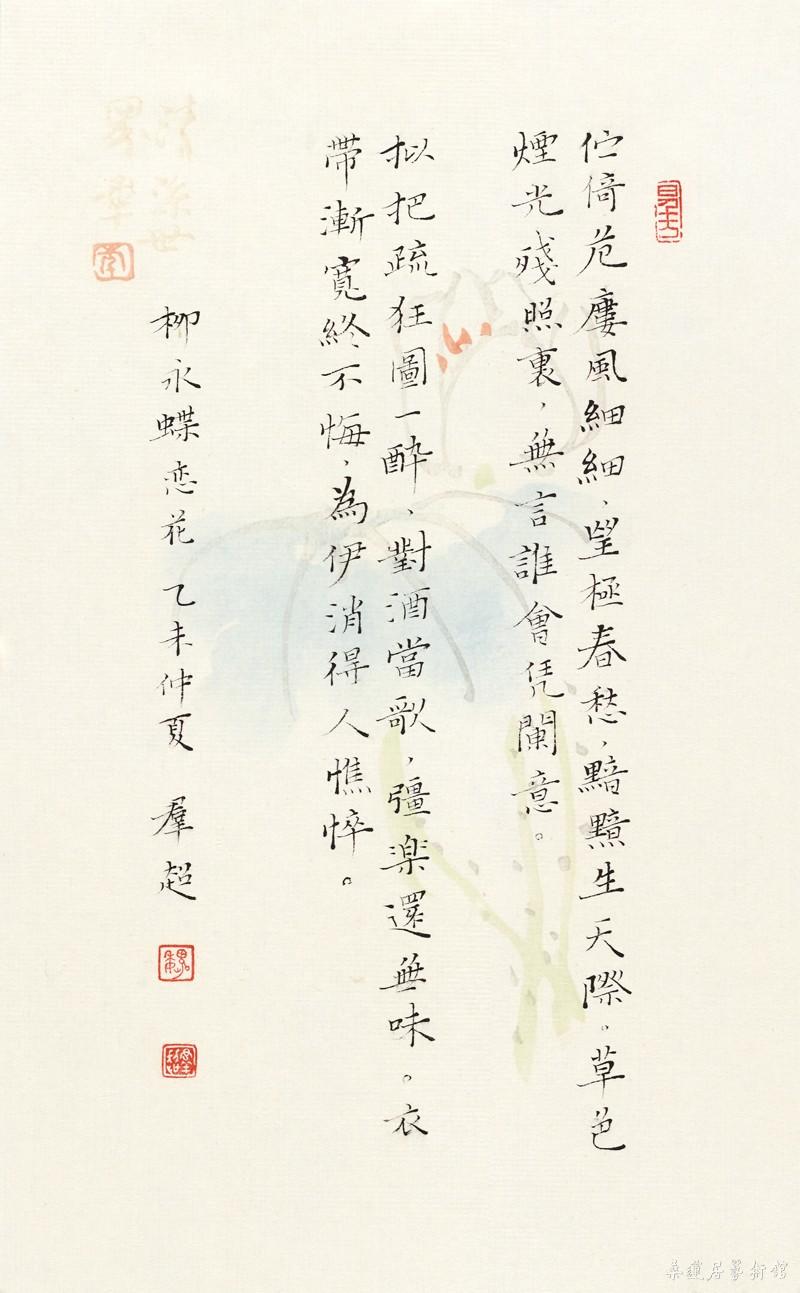 伫倚危廔風細細，望極春愁，黯黯生天際。草色
煙光殘照裏，無言誰會凭闌意。
拟把疏狂圖一醉，對酒當歌，彊楽還無味。衣
帶漸寬終不悔，為伊消得人憔悴。
柳永蝶恋花 乙未仲夏 羣超